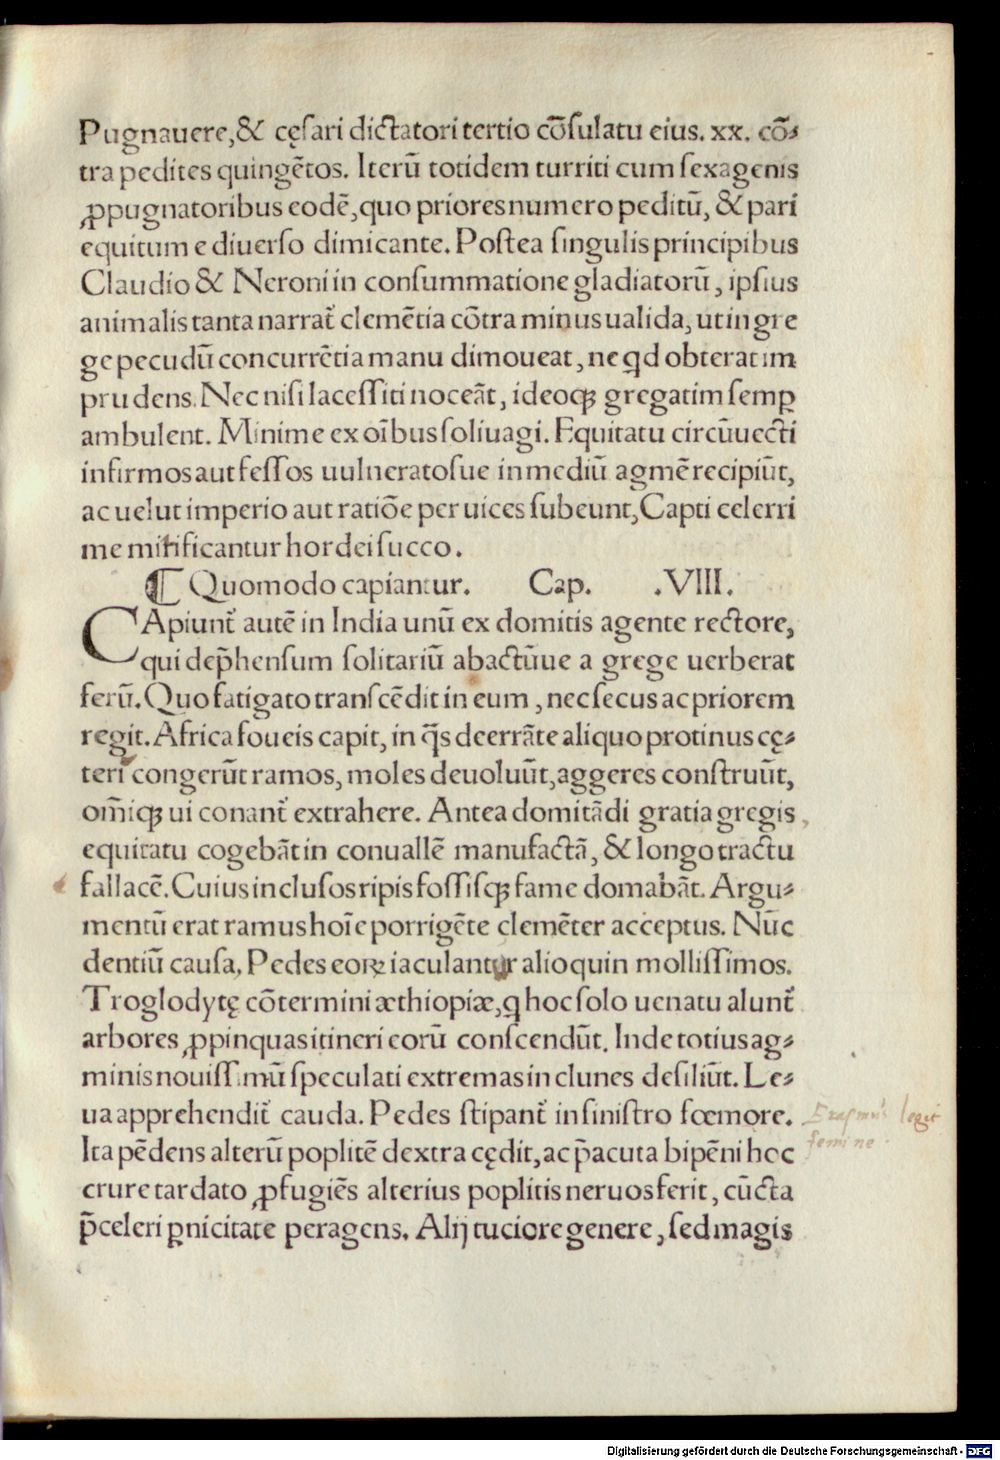 Pugnauere,& cęſari dictatori tertio cõſulatu eius. xx. cõ⸗
tra pedites quingẽtos. Iterũ totidem turriti cum ſexagenis
ꝓpugnatoribus eodẽ,quo priores numero peditũ, & pari
equitum e diuerſo dimicante. Poſtea ſingulis principibus
Claudio & Neroni in conſummatione gladiatorũ, ipſius
animalis tanta narrat᷑ clemẽtia cõtra minus ualida, ut in gre
ge pecudũ concurrẽtia manu dimoueat, ne qd obterat im
prudens. Nec niſi laceſſiti noceãt, ideoqꝫ gregatim ſemꝑ
ambulent. Minime ex oĩbus ſoliuagi. Equitatu circũuecti
infirmos aut feſſos uulneratoſue in mediũ agmẽ recipiũt,
ac uelut imperio aut ratiõe per uices ſubeunt, Capti celerri
me mitificantur hordei ſucco.
⁋ Quomodo capiantur. Cap. .VIII.
CApiunt᷑ autẽ in India unũ ex domitis agente rectore,
qui dep̃henſum ſolitariũ abactũue a grege uerberat
ferũ. Quo fatigato tranſcẽdit in eum, nec ſecus ac priorem
regit. Africa foueis capit, in q̃s deerrãte aliquo protinus cę⸗
teri congerũt ramos, moles deuoluũt, aggeres conſtruũt,
om̃iqꝫ ui conant᷑ extrahere. Antea domitãdi gratia gregis
equitatu cogebãt in conuallẽ manufactã, & longo tractu
fallacẽ. Cuius incluſos ripis foſſiſqꝫ fame domabãt. Argu⸗
mentũ erat ramus hoĩe porrigẽte clemẽter acceptus. Nũc
dentiũ cauſa. Pedes eoꝝ iaculantur alioquin molliſſimos.
Troglodytę cõtermini æthiopiæ, q hoc ſolo uenatu alunt᷑
arbores ꝓpinquas itineri eorũ conſcendũt. Inde totius ag⸗
minis nouiſſimũ ſpeculati extremas in clunes deſiliũt. Le⸗
ua apprehendit᷑ cauda. Pedes ſtipant᷑ in ſiniſtro fœmore.
Ita pẽdens alterũ poplitẽ dextra cędit, ac p̃acuta bipẽni hoc
crure tardato ꝓfugiẽs alterius poplitis neruos ferit, cũcta
p̃celeri ꝑnicitate peragens. Alij tuciore genere, ſed magis
Eraſmus legit
femine.
Digitalisierung gefördert durch die Deutsche Forschungsgemeinschaft - DFG